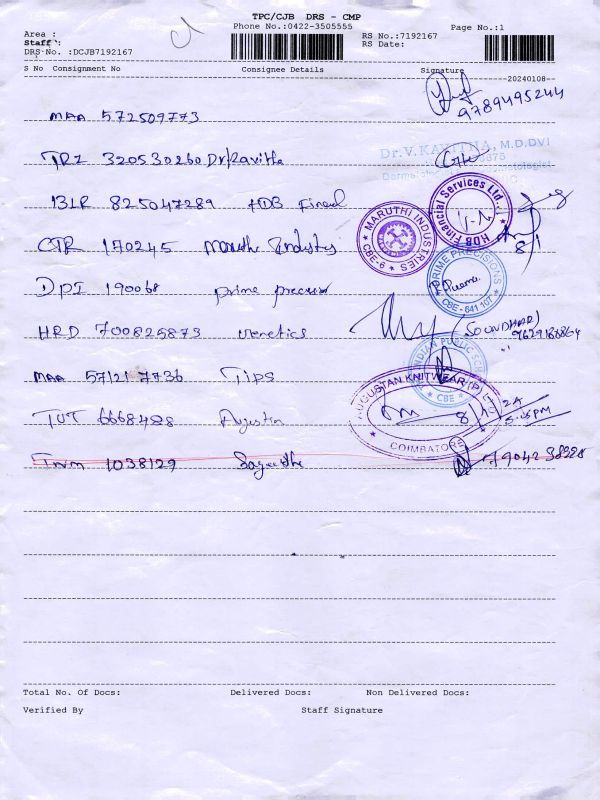 TPC/CJB DRS - CMP
Phone No.:0422-3505555
Page No.:1
Area :
Staff :
RS No.:7192167
DRS No. :DCJB7192167
RS Date:
S No Consignment No Consignee Details Signature
20240108
9789495244
MAA 572509773
Dr.V.KAVITHA, M.D.DVL
TRZ 320530260 Dr Kavitha
BLR 825047289 HDB
HDB Financial Services Ltd.
MARUTHI INDUSTRIES
CBE-6
CTR 170245 Maruthi Industry
8/1
DPI 190068 prime
PRIME PRECISIONS
CBE - 641 107
HRD 700825873 Genetics
(SOUNDHAR)
MAA 57121 7736 Tips
PUBLIC
CBE
TUT 6668488
AUGUSTAN KNITWEAR (P)
COIMBATORE
TNM 1038129
Total No. Of Docs: Delivered Docs: Non Delivered Docs:
Verified By Staff Signature